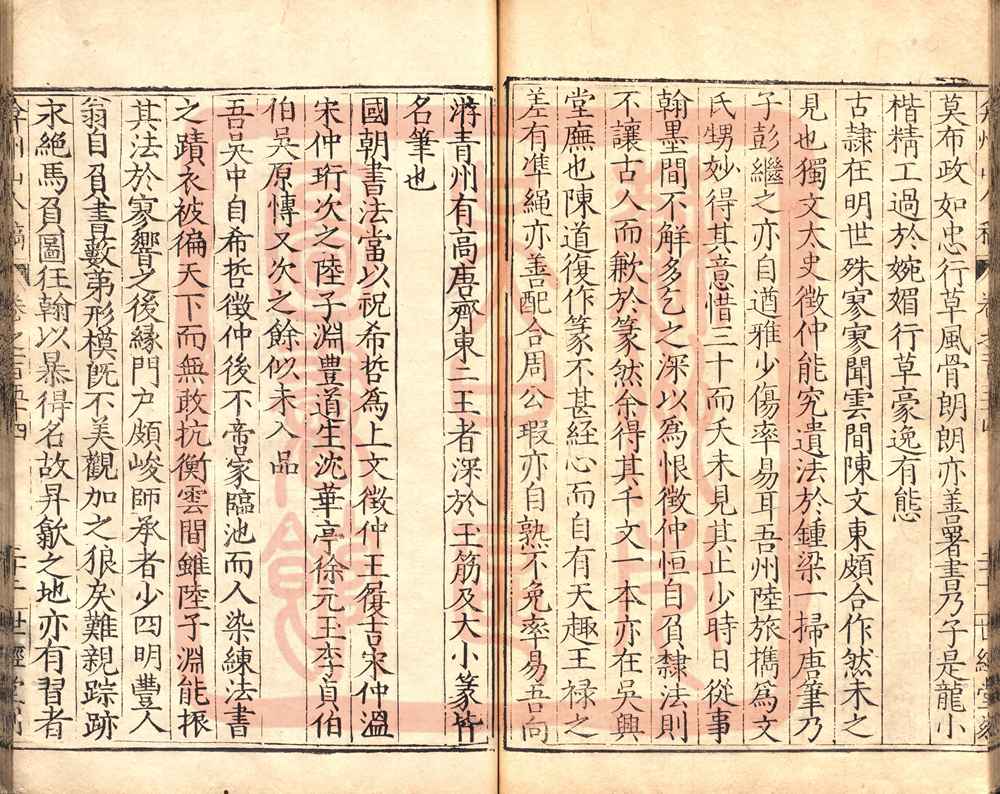 莫布政如忠行草風骨朗朗亦善署書乃子是龍小
楷精工過於婉媚行草豪逸有態
古隷在明世殊寥寥聞雲間陳文東頗合作然未之
見也獨文太史徵仲能究遺法於鍾梁一掃唐筆乃
子彭繼之亦自遒雅少傷率易耳吾州陸旅擕為文
氏甥妙得其意惜三十而夭未見其止少時日從事
翰墨間不觧多乞之深以為恨徵仲恒自負隸法則
不讓古人而歉於篆然余得其千文一本亦在吳興
堂廡也陳道復作篆不甚經心而自有天趣王祿之
差有凖繩亦善配合周公瑕亦自熟不免率易吾向
游青州有高唐齊東二王者深於玉筋及大小篆皆
名筆也
國朝書法當以祝希哲為上文徵仲王履吉宋仲溫
宋仲珩次之陸子淵豊道生沈華亭徐元玉李貞伯
伯吳原愽又次之餘似未入品
吾吳中自希哲徵仲後不啻家臨池而人染練法書
之蹟衣被徧天下而無敢抗衡雲間雖陸子淵能振
其法於寥響之後緣門户頗峻師承者少四明豐人
翁自負書藪弟形模旣不美觀加之狼戾難親踪跡
永絕馬負圖任翰以暴得名故昇歙之地亦有習者
弇州山人稿 卷之一百五十四 二十二 世經堂刻